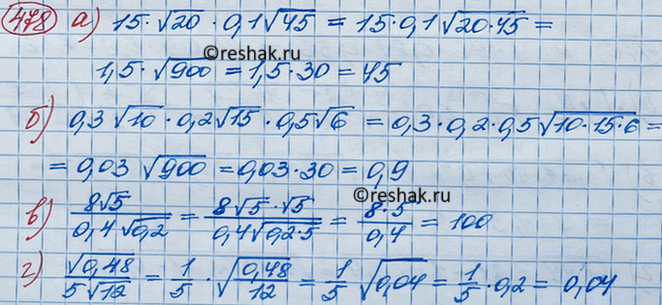 478 а) 15·√20 · 0,1√45 = 15·0,1√20·45 =
1,5·√900 = 1,5·30 = 45
©reshak.ru
б) 0,3√10 · 0,2√15 · 0,5√6 = 0,3·0,2·0,5√10·15·6 =
= 0,03√900 = 0,03·30 = 0,9
©reshak.ru
в) 8√5/0,4√0,2 = 8√5·√5/0,4√0,2·5 = 8·5/0,4 = 100
г) √0,48/5√12 = 1/5·√0,48/12 = 1/5√0,04 = 1/5·0,2 = 0,04